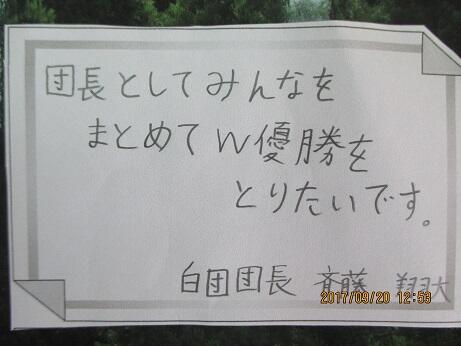 団長としてみんなを
まとめてW優勝を
とりたいです。
白団団長 斉藤 翔大
2017/09/20 12:53